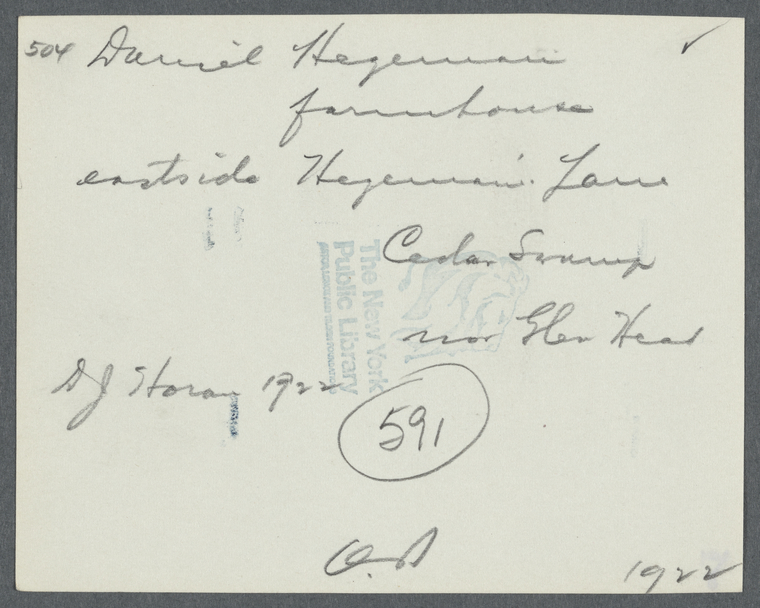 504 Daniel Hegeman ✓
farmhouse
eastside Hegeman Lane
Cedar Swamp
near Glen Head
The New York
Public Library
D J Horan 1922
591
1922